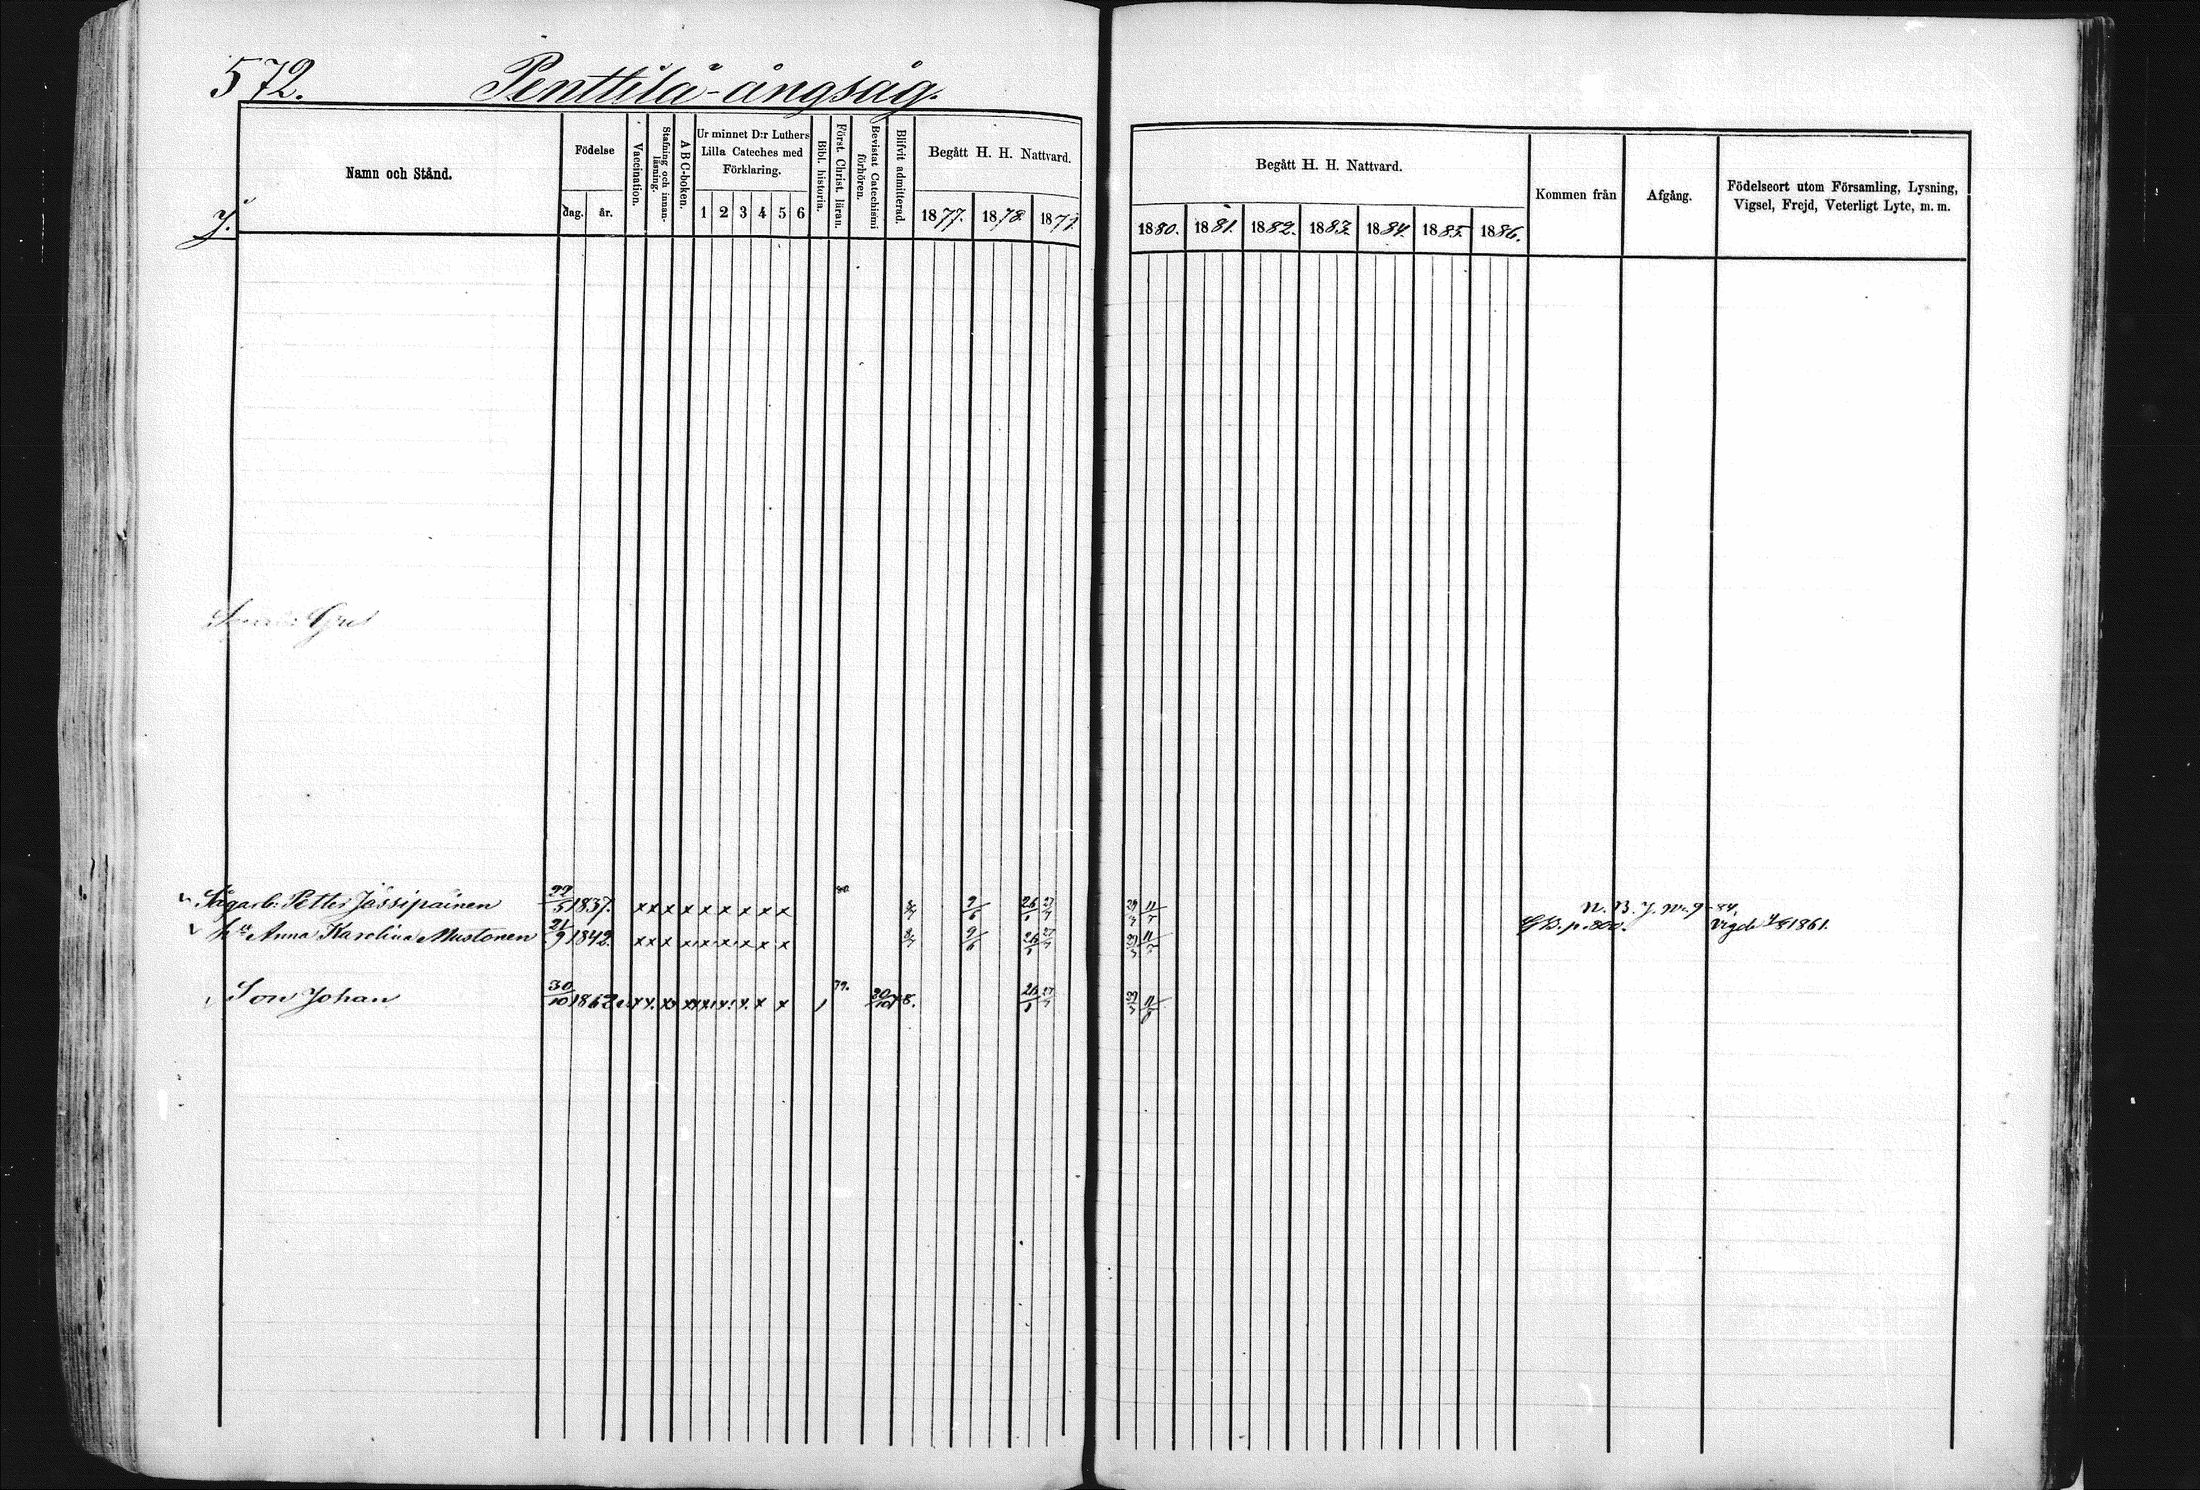 572.
Penttilä-ångsåg.
J.
Namn och Stånd.
Födelse
dag. år.
Vaccination.
Stafning och innan-läsning.
ABC-boken.
Ur minnet D:r Luthers
Lilla Cateches med
Förklaring.
1 2 3 4 5 6
Bibl. historia.
Först. Christ. läran.
Bevistat Catechismi förhören.
Blifvit admitterad.
Begått H. H. Nattvard.
1877. 1878. 1879.
Begått H. H. Nattvard.
1880. 1881. 1882. 1883. 1884. 1885. 1886.
Kommen från
Afgång.
Födelseort utom Församling, Lysning,
Vigsel, Frejd, Veterligt Lyte, m. m.
Sågarb. Petter Jässipäinen 22/5 1837. x x x x x x x x x 80. 9/6 26/1 27/7 29/3 11/7
hu Anna Karolina Mustonen 21/9 1842. x x x x x x x x x 9/6 26/1 27/7 29/3 11/7 vigde 1861.
Son Johan 30/10 1862 79. 30/10 78. 26/1 27/7 29/3 11/7